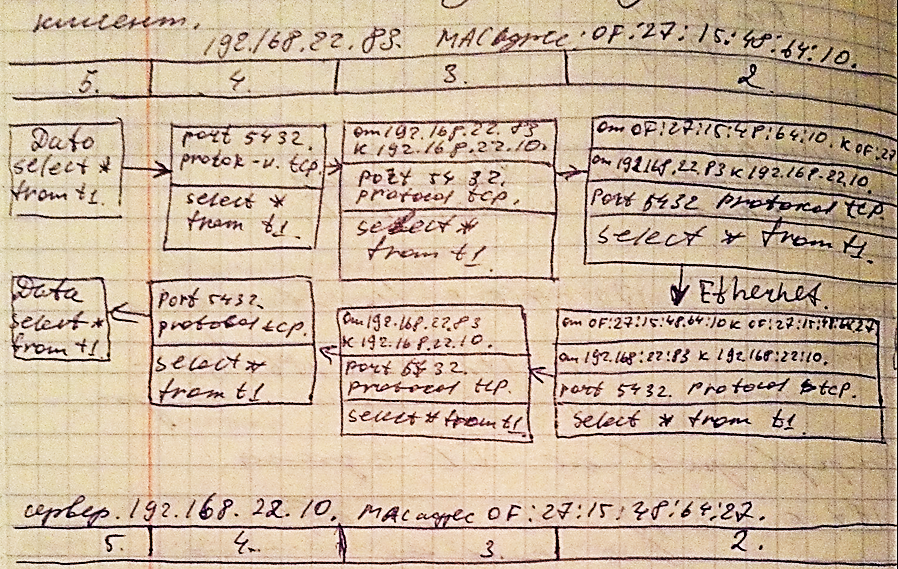 клиент.
192.168.22.83. MAC адрес: OF:27:15:48:64:10.
5. 4. 3. 2
Data
select *
from t1.
port 5432
protok-л. tcp.
select *
from t1.
от 192.168.22.83
к 192.168.22.10.
port 5432.
protocol tcp.
select *
from t1.
от OF:27:15:48:64:10. к OF:27
от 192.168.22.83 к 192.168.22.10.
port 5432 protocol tcp
select * from t1.
Ethernet.
Data
select *
from t1
port 5432.
protocol tcp.
select *
from t1.
от 192.168.22.83
к 192.168.22.10.
port 5432.
protocol tcp.
select * from t1.
от OF:27:15:48:64:10 к OF:27:15:48:64:27
от 192.168:22:83 к 192.168:22:10.
port 5432. protocol tcp.
select * from t1.
сервер. 192.168.22.10. MAC адрес OF:27:15:48:64:27.
5. 4. 3. 2.